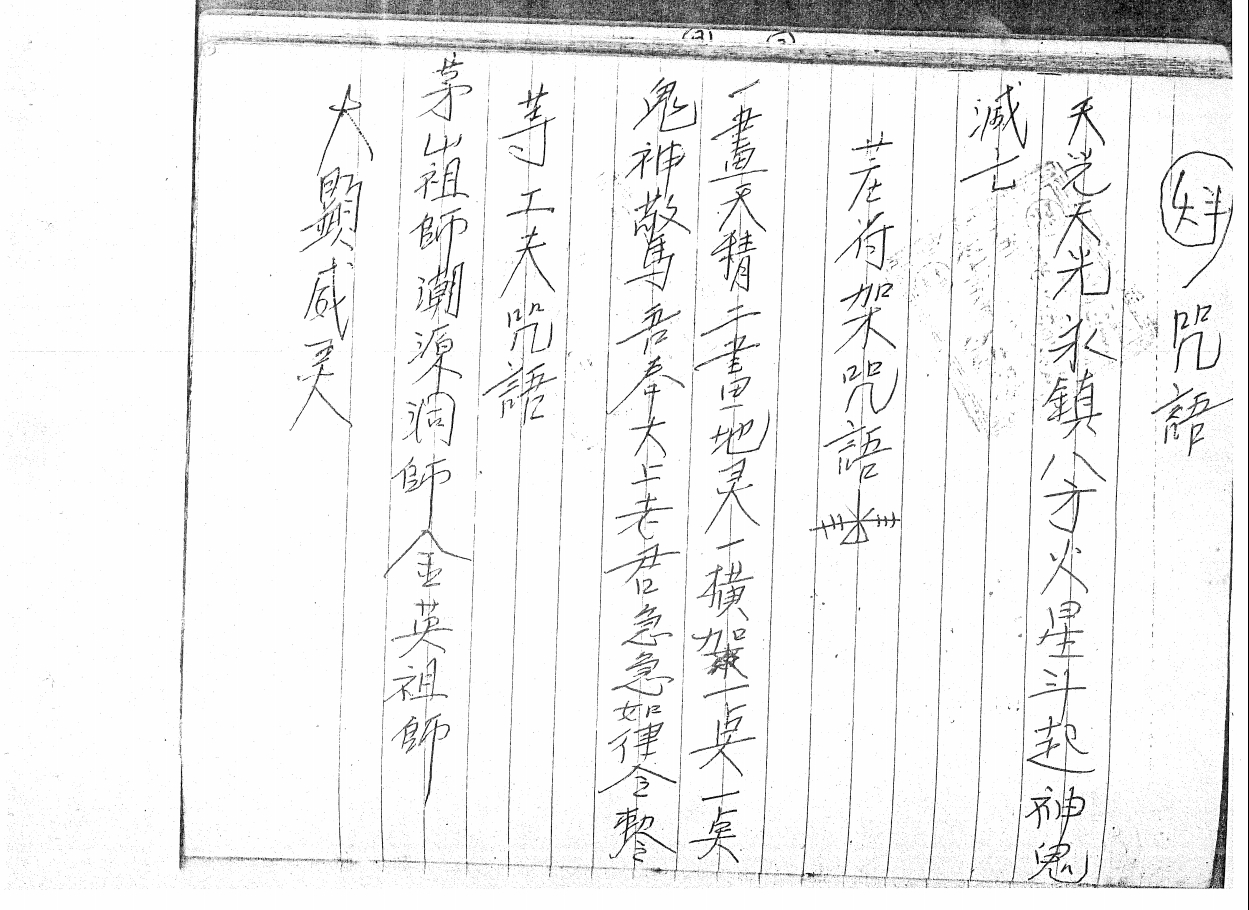 咒語
天光天光永鎮八方火星斗起神鬼
滅亡
符架咒語
一畫天精二畫地灵一橫架一点一点
鬼神驚吾奉太上老君急急如律令
等工夫咒語
茅山祖師潮源洞師金英祖師
大顯威灵